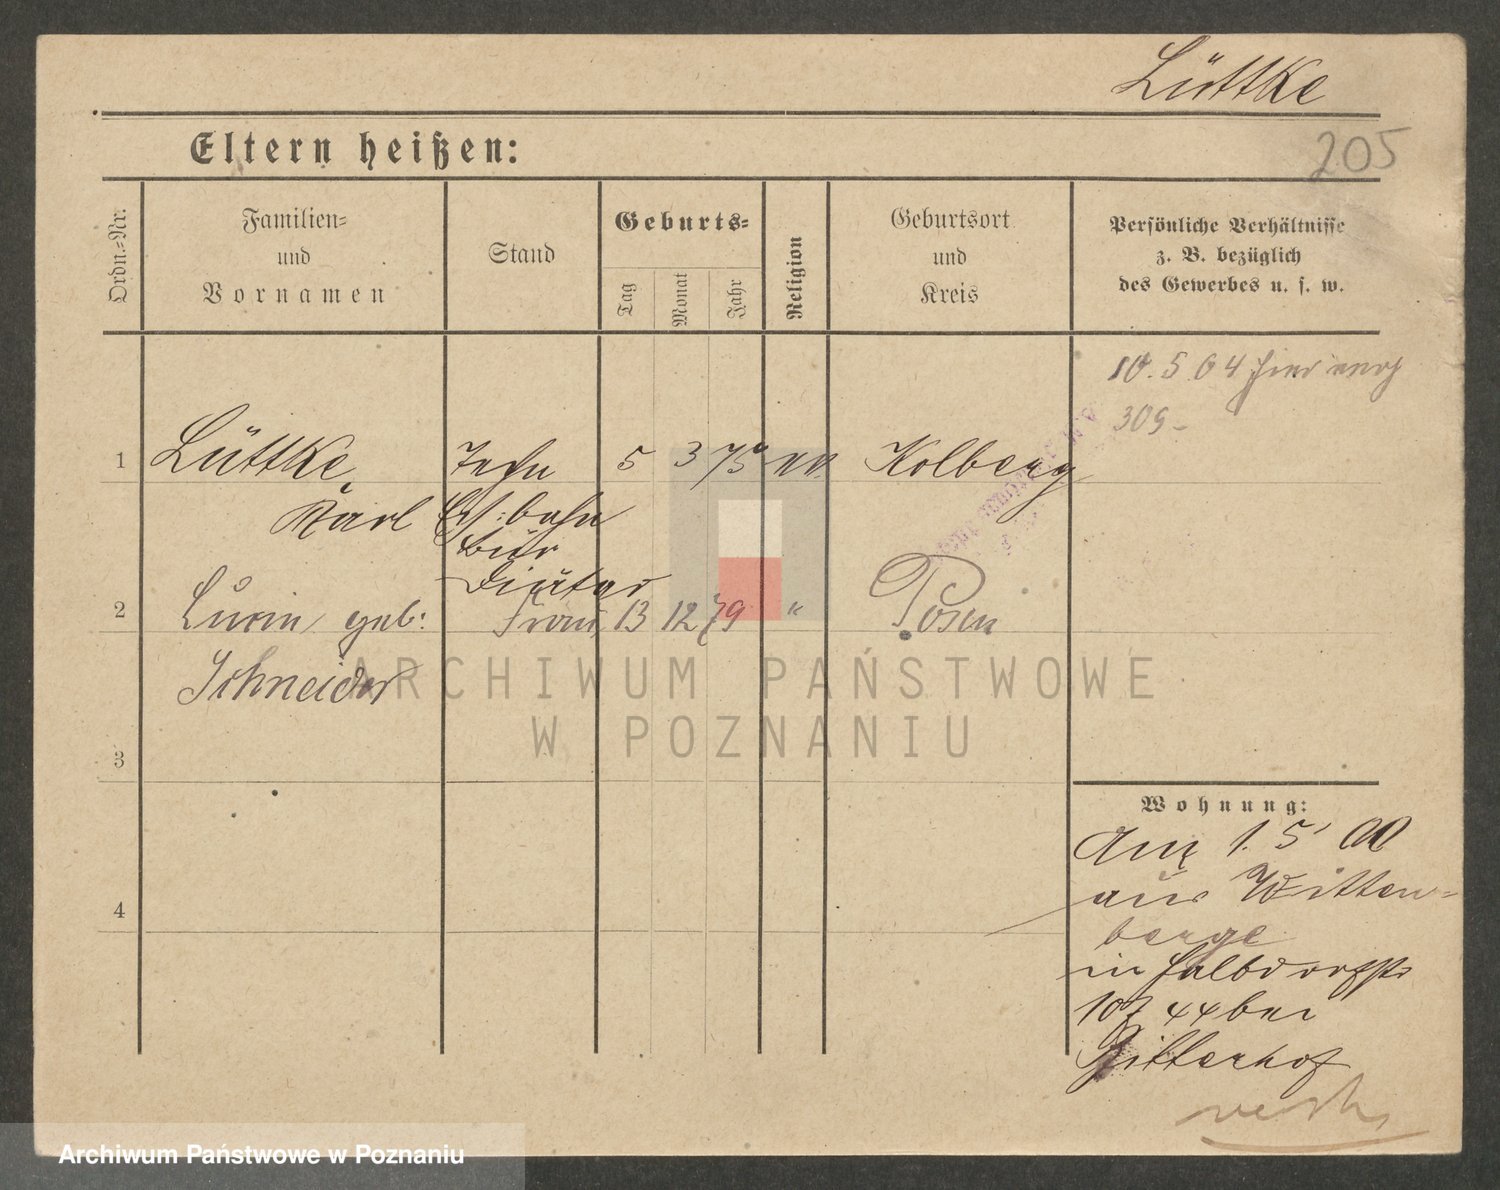 Lüttke
205
Eltern heißen:
Ordn.-Nr.
Familien-
und
Vornamen
Stand
Geburts-
Tag
Monat
Jahr
Religion
Geburtsort
und
Kreis
Persönliche Verhältnisse
z. B. bezüglich
des Gewerbes u. s. w.
10. 5 04 hier
309
1
Lüttke,
Karl
5 3 75 ev.
Kolberg
Bür
Diätar
2
geb:
Schneider
Frau 13 12 79 "
Posen
3
4
Wohnung:
1. 5 00
aus Witten-
berge
in Halbdorfstr
bei
Ritterhof
ARCHIWUM PAŃSTWOWE
W POZNANIU
Archiwum Państwowe w Poznaniu